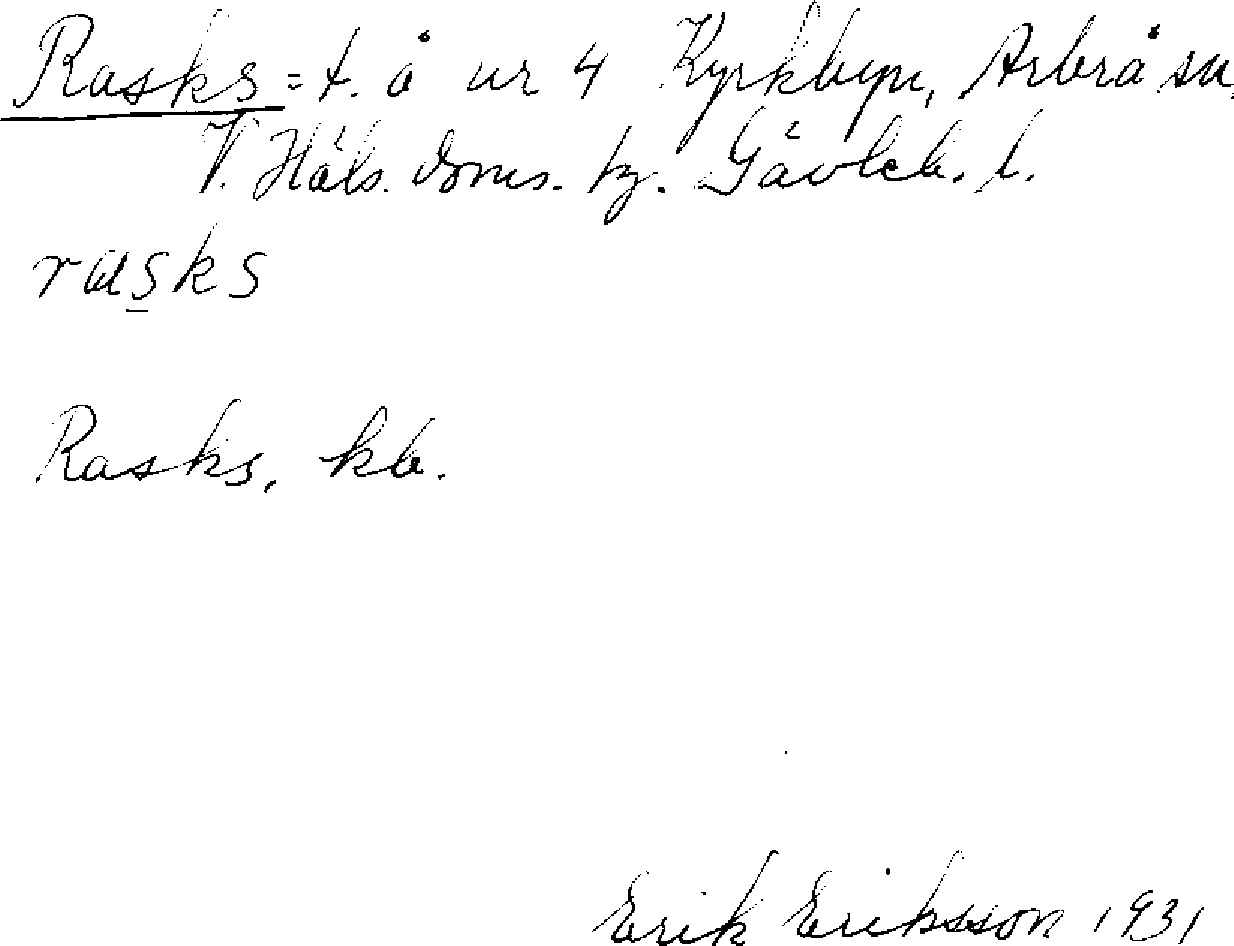 Rasks = t. å nr 4 Kyrkbyn, Arbrå sn,
V. Häls. doms. tg. Gävleb. l.
rasks
Rasks, kb.
Erik Eriksson 1931